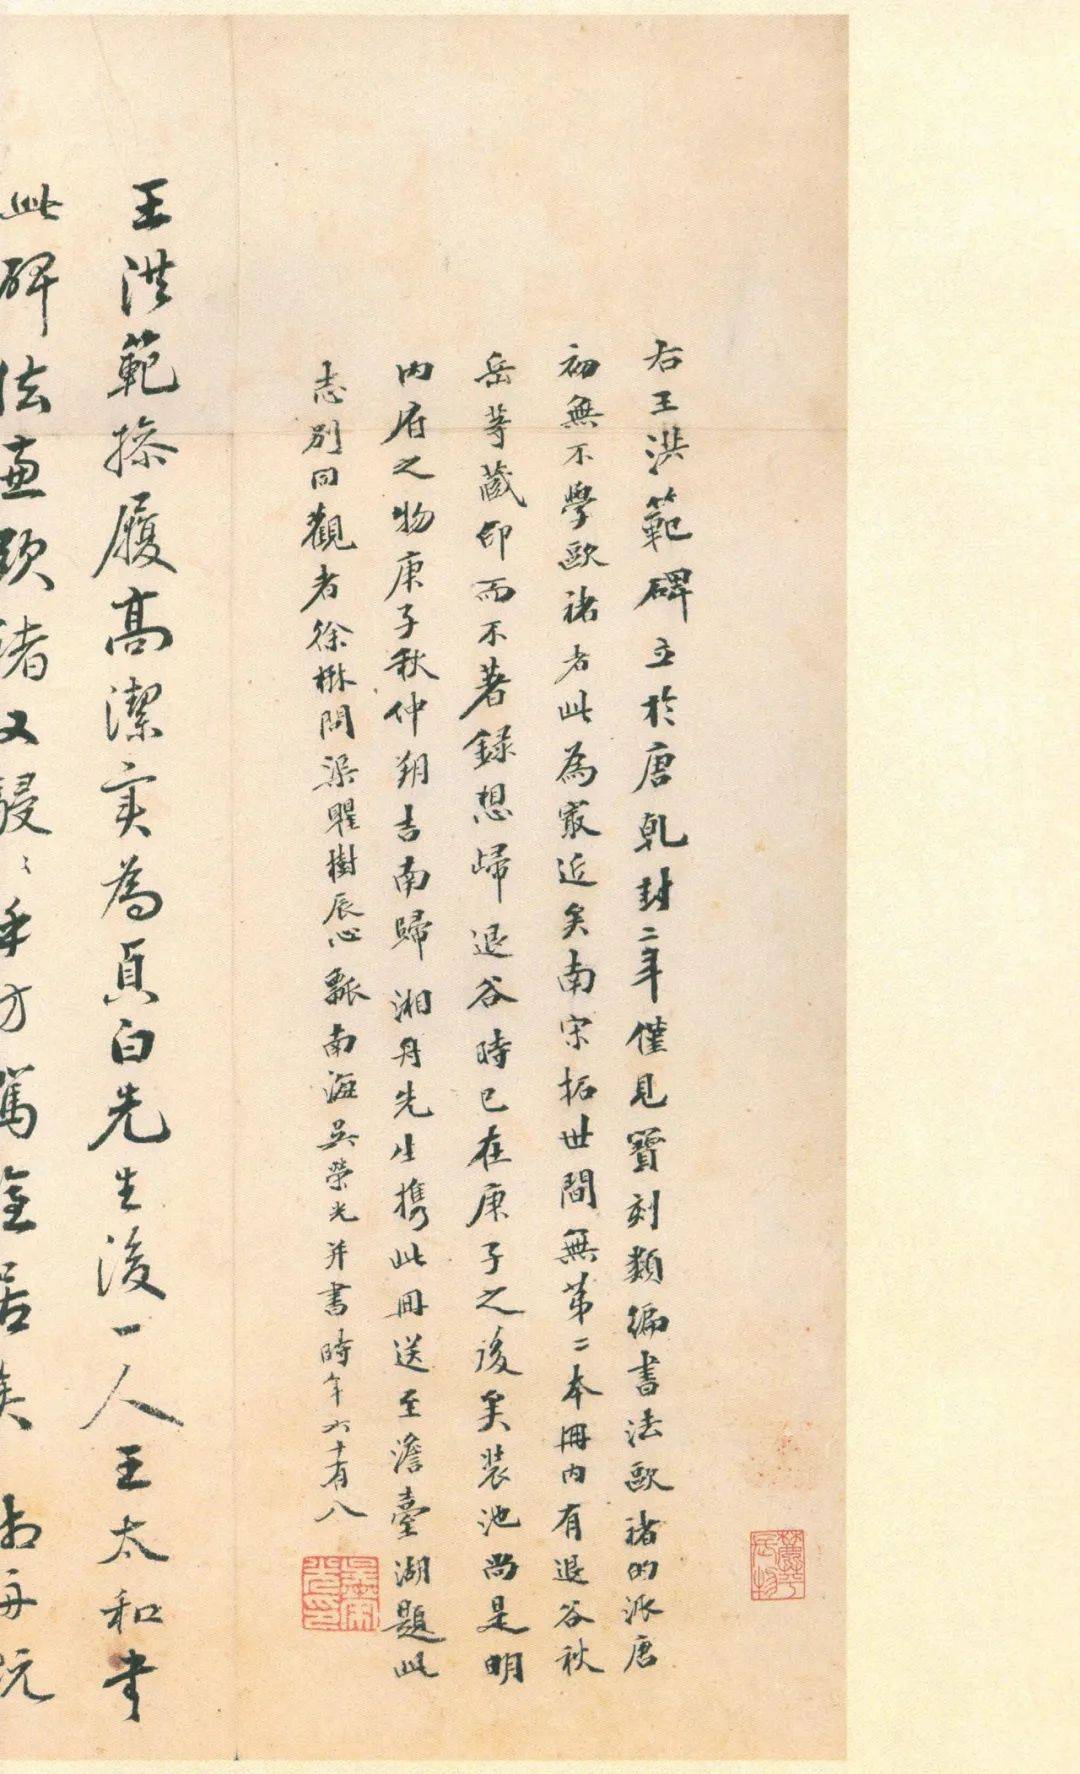 右王洪範碑立於唐乾封二年僅見寶刻類編書法歐褚的派唐
初無不學歐褚者此為寂近矣南宋拓世間無第二本冊内有退谷秋
岳等蔵印而不著錄想歸退谷時已在庚子之後矣裝池尚是明
内府之物庚子秋仲朔吉南歸湘舟先生携此冊送至澹臺湖題此
志別同觀者徐楙問渠瞿樹辰心瓢南海吳榮光并書時年六十有八
王洪範操履高潔实為貞白先生後一人王太和書
此碑法兼歐渚又駸〻乎方駕登居矣
吳榮光印